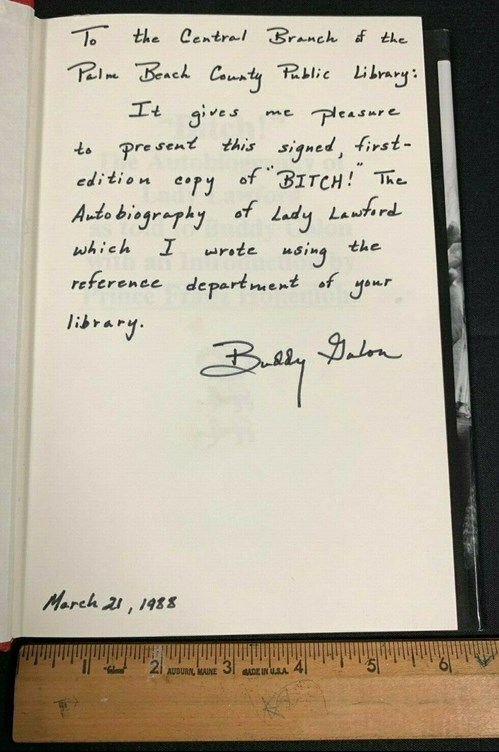 To the Central Branch of the
Palm Beach County Public Library:
It gives me pleasure
to present this signed, first-
edition copy of "BITCH!" The
Autobiography of Lady Lawford
which I wrote using the
reference department of your
library.
Buddy Galon
March 21, 1988
1 2 AUBURN, MAINE 3 MADE IN U.S.A. 4 5 6